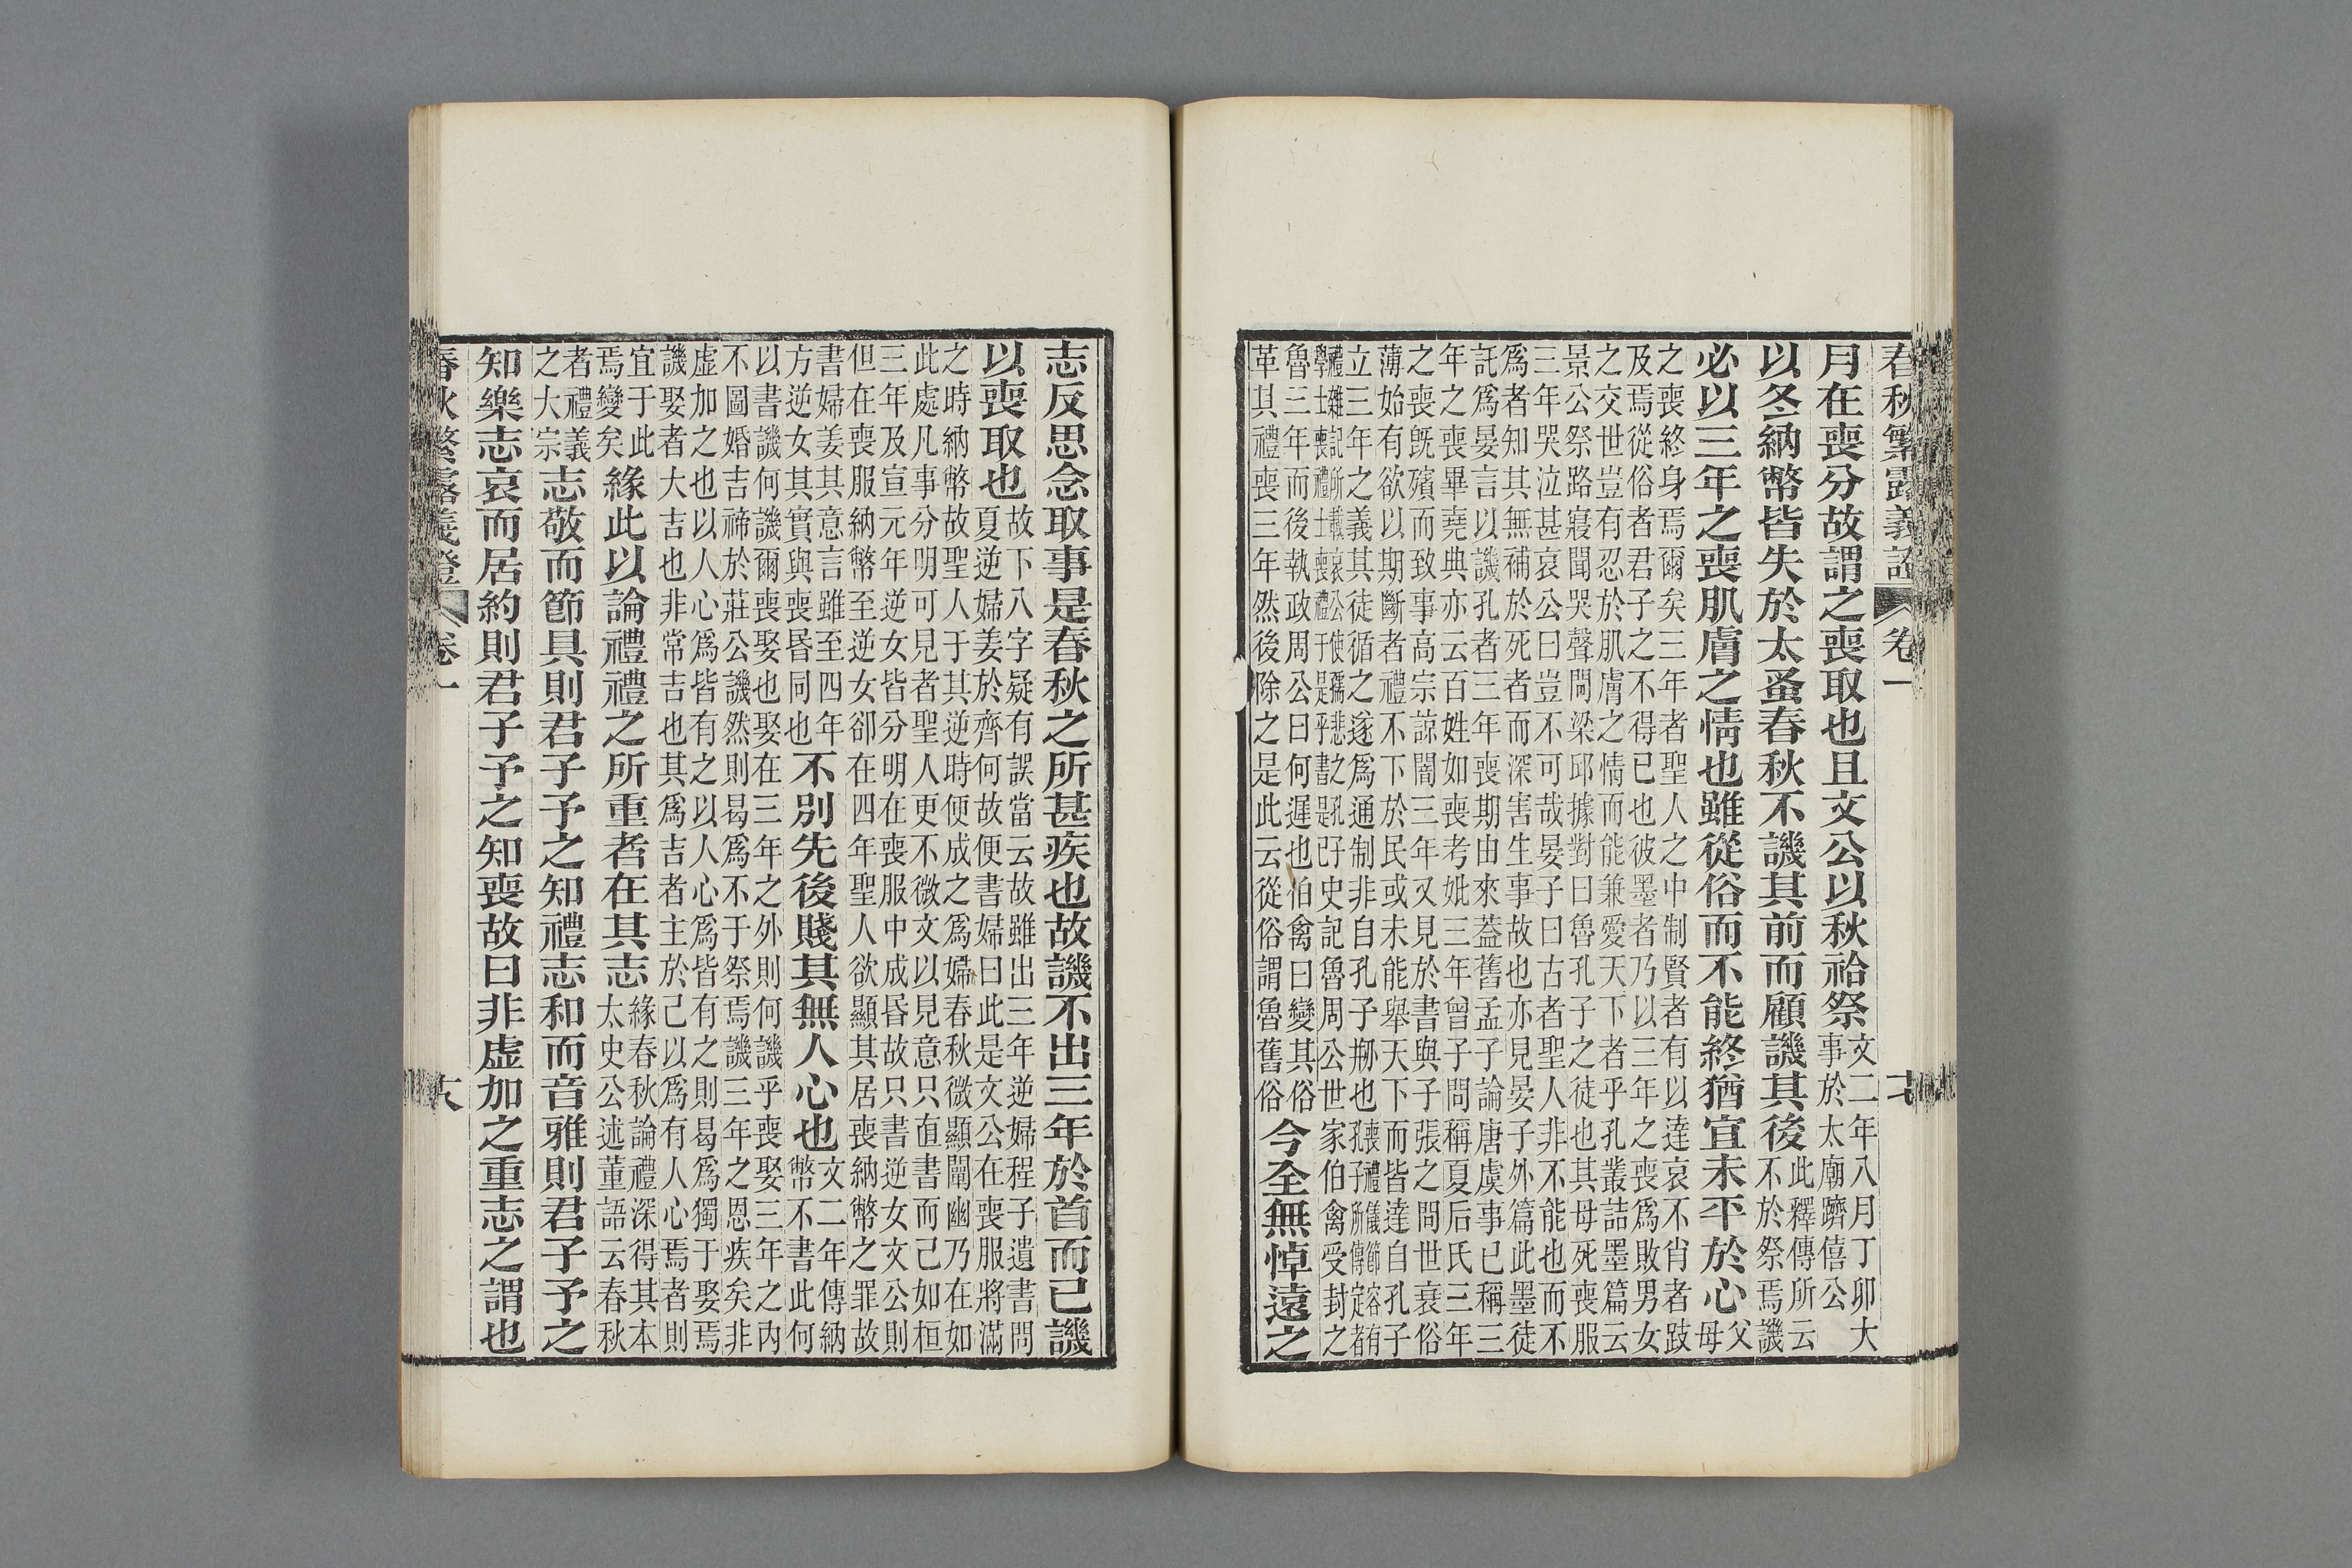 春秋繁露義證　卷一　十七
月在喪分故謂之喪取也且文公以秋祫祭
文二年八月丁卯大
事於太廟躋僖公
以冬納幣皆失於太蚤春秋不譏其前而顧譏其後
此釋傳所云
不於祭焉譏
必以三年之喪肌膚之情也雖從俗而不能終猶宜未平於心
父
母
之喪終身焉爾矣三年者聖人之中制賢者有以達哀不肖者跂
及焉從俗者君子之不得已也彼墨者乃以三年之喪爲敗男女
之交世豈有忍於肌膚之情而能兼愛天下者乎孔叢詰墨篇云
景公祭路寢聞哭聲問梁邱據對曰魯孔子之徒也其母死喪服
三年哭泣甚哀公曰豈不可哉晏子曰古者聖人非不能也而不
爲者知其無補於死者而深害生事故也亦見晏子外篇此墨徒
託爲晏言以譏孔者三年喪期由來蓋舊孟子論唐虞事已稱三
年之喪畢堯典亦云百姓如喪考妣三年曾子問稱夏后氏三年
之喪旣殯而致事高宗諒闇三年又見於書與子張之問世衰俗
薄始有欲以期斷者禮不下於民或未能舉天下而皆達自孔子
立三年之義其徒循之遂爲通制非自孔子刱也
喪禮儀節容有
孔子所傳定者
禮雜記所載哀公使孺悲之孔子
學士喪禮士喪禮于是乎書是已
史記魯周公世家伯禽受封之
魯三年而後執政周公曰何遲也伯禽曰變其俗
革其禮喪三年然後除之是此云從俗謂魯舊俗
今全無悼遠之
志反思念取事是春秋之所甚疾也故譏不出三年於首而已譏
以喪取也
故下八字疑有誤當云故雖出三年逆婦程子遺書問
夏逆婦姜於齊何故便書婦曰此是文公在喪服將滿
之時納幣故聖人于其逆時便成之爲婦春秋微顯闡幽乃在如
此處凡事分明可見者聖人更不微文以見意只直書而已如桓
三年及宣元年逆女皆分明在喪服中成昏故只書逆女文公則
但在喪服納幣至逆女卻在四年聖人欲顯其居喪納幣之罪故
書婦姜其意言雖至四年
方逆女其實與喪昏同也
不別先後賤其無人心也
文二年傳納
幣不書此何
以書譏何譏爾喪娶也娶在三年之外則何譏乎喪娶三年之內
不圖婚吉禘於莊公譏然則曷爲不于祭焉譏三年之恩疾矣非
虛加之也以人心爲皆有之以人心爲皆有之則曷爲獨于娶焉
譏娶者大吉也非常吉也其爲吉者主於己以爲有人心焉者則
宜于此
焉變矣
緣此以論禮禮之所重者在其志
緣春秋論禮深得其本
太史公述董語云春秋
者禮義
之大宗
志敬而節具則君子予之知禮志和而音雅則君子予之
知樂志哀而居約則君子予之知喪故曰非虛加之重志之謂也
春秋繁露義證　卷一　十八